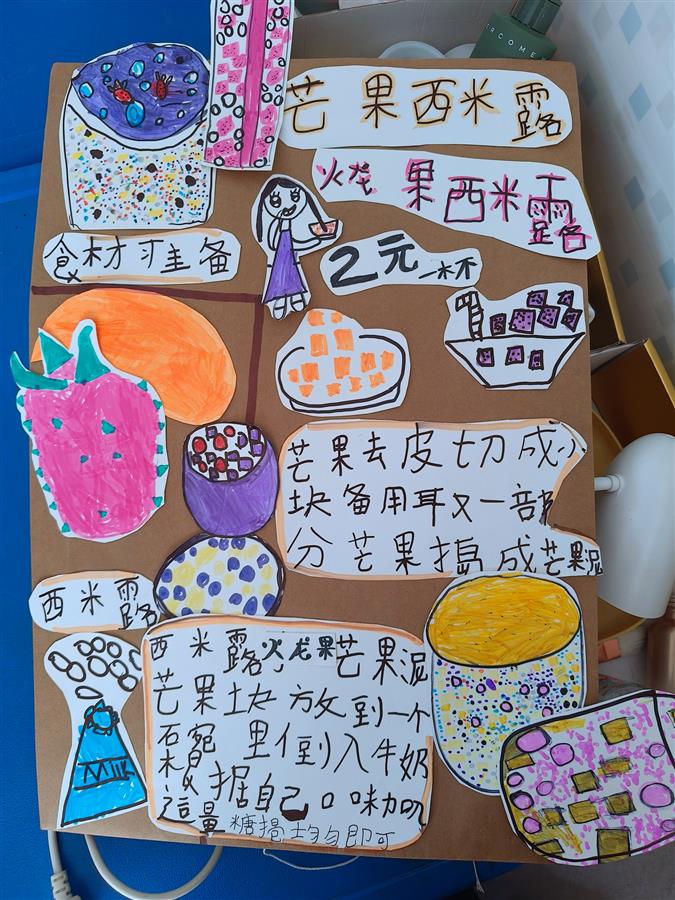 ERCOMEN
芒果西米露
火龙果西米露
2元一杯
食材准备
芒果去皮切成小
块备用取一部
分芒果捣成芒果泥
西米露
西米露火龙果芒果泥
芒果块放到一个
里倒入牛奶
据自己口味加
适量糖搅均匀即可
Milk